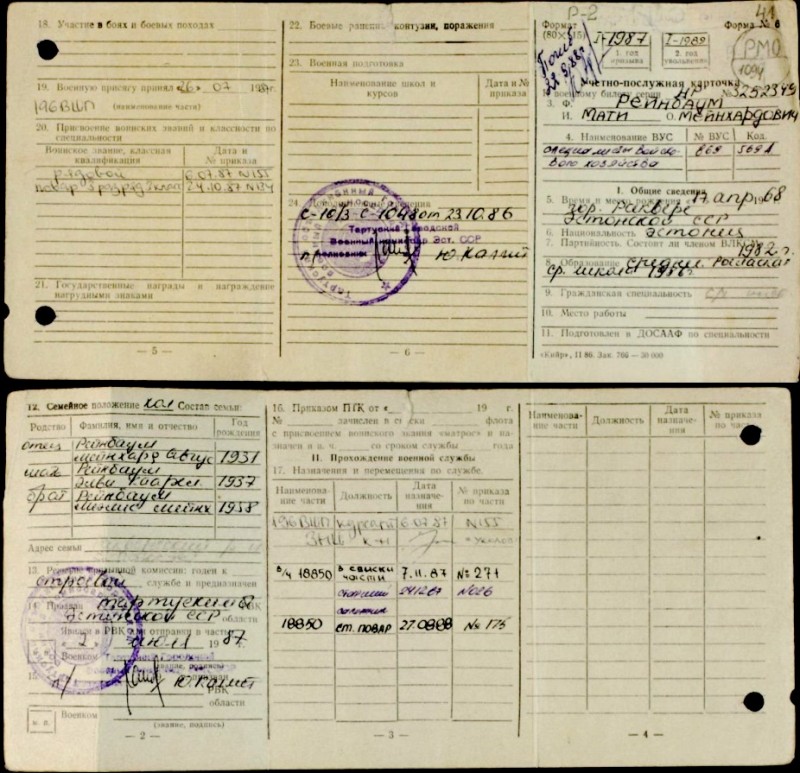 18. Участие в боях и боевых походах
19. Военную присягу принял «26» 07 1987г.
196 ВШП (наименование части)
20. Присвоение воинских званий и классности по специальности
Воинское звание, классная квалификация
Дата и № приказа
рядовой 6.07.87 N155
повар 24.10.87
21. Государственные награды и награждение нагрудными знаками
— 5 —
22. Боевые ранения, контузии, поражения
23. Военная подготовка
Наименование школ и курсов
Дата и № приказа
24.
С-1048 от 23.10.86
Тартуский Городской
Военный комиссар Эст. ССР
— 6 —
Р-2
41
Формат (80×115)
Форма № 6
I-1987
1. год призыва
I-1989
2. год увольнения
РМО
1094
Учетно-послужная карточка
К военному билету серии НР № 3252349
3. Ф. РЕЙНБАУМ
И. МАТИ О. МЕЙНХАРДОВИЧ
4. Наименование ВУС
№ ВУС
Код.
специалисты войскового хозяйства
869
I. Общие сведения
5. Время и место рождения 17 апр. 1968
гор. Раквере
Эстонской ССР
6. Национальность эстонец
7. Партийность. Состоит ли членом ВЛКСМ
1982 г.
8. Образование средн.
ср. школа
9. Гражданская специальность
10. Место работы
11. Подготовлен в ДОСААФ по специальности
«Кийр», П 86. Зак. 766 — 30 000
12. Семейное положение хол Состав семьи:
Родство
Фамилия, имя и отчество
Год рождения
отец Рейнбаум
Мейнхард Авгус 1931
мать Рейнбаум
Эльви Каарел 1937
брат Рейнбаум
1958
Адрес семьи
13. Решение призывной комиссии: годен к
строевой службе и предназначен
14. Призван Тартуским РВК
Эстонской ССР области
Явился в РВК для отправки в часть
« 2 » июля 1987
Военком
15.
РВК
области
М. П.
Военком
(звание, подпись)
— 2 —
16. Приказом ПТК от « 19 г.
№ зачислен в списки флота
с присвоением воинского звания «матрос» и назначен в в. ч. со сроком службы года
II. Прохождение военной службы
17. Назначения и перемещения по службе.
Наименование части
Должность
Дата назначения
№ приказа по части
196 ВШП курсант 6.07.87 N155
в/ч 18850 в списки части 7.11.87 №271
18850 ст. повар 27.0888 №175
— 3 —
Наименование части
Должность
Дата назначения
№ приказа по части
— 4 —